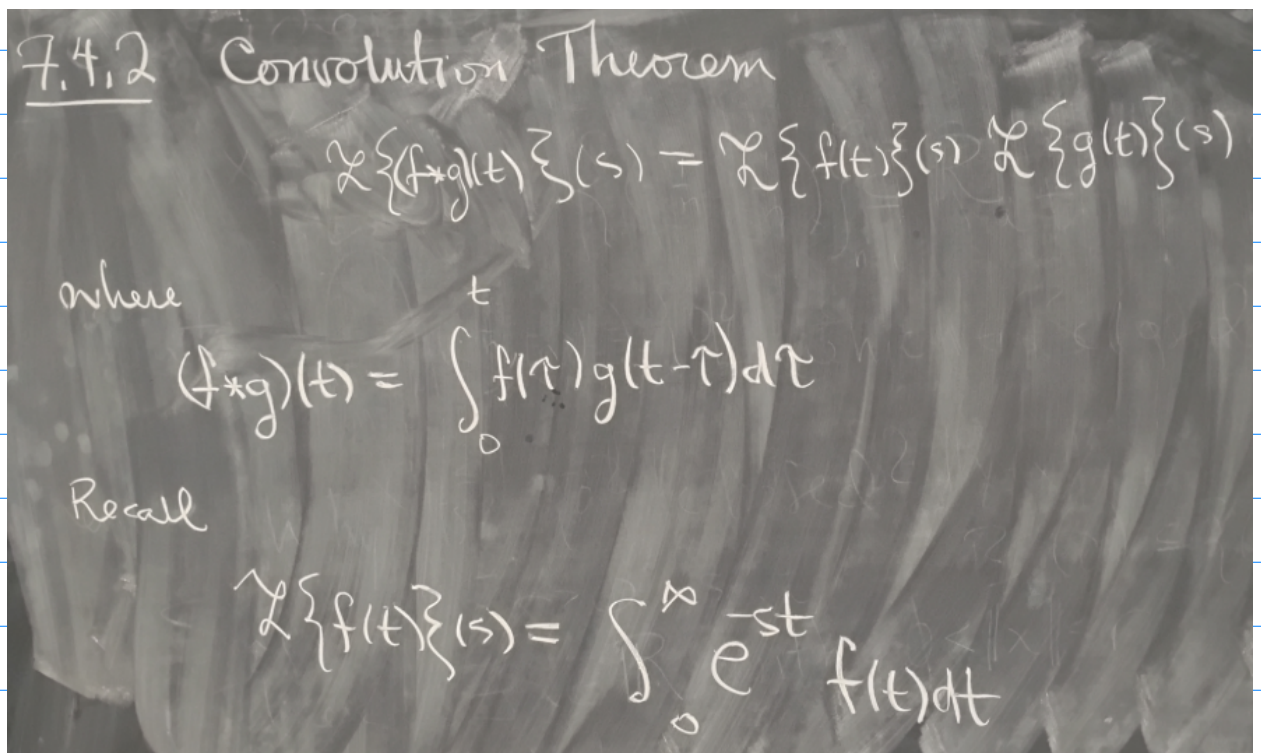 7.4.2 Convolution Theorem
ℒ{(f*g)(t)}(s) = ℒ{f(t)}(s) ℒ{g(t)}(s)
where
(f*g)(t) = ∫₀ᵗ f(τ)g(t-τ)dτ
Recall
ℒ{f(t)}(s) = ∫₀^∞ e^{-st} f(t)dt